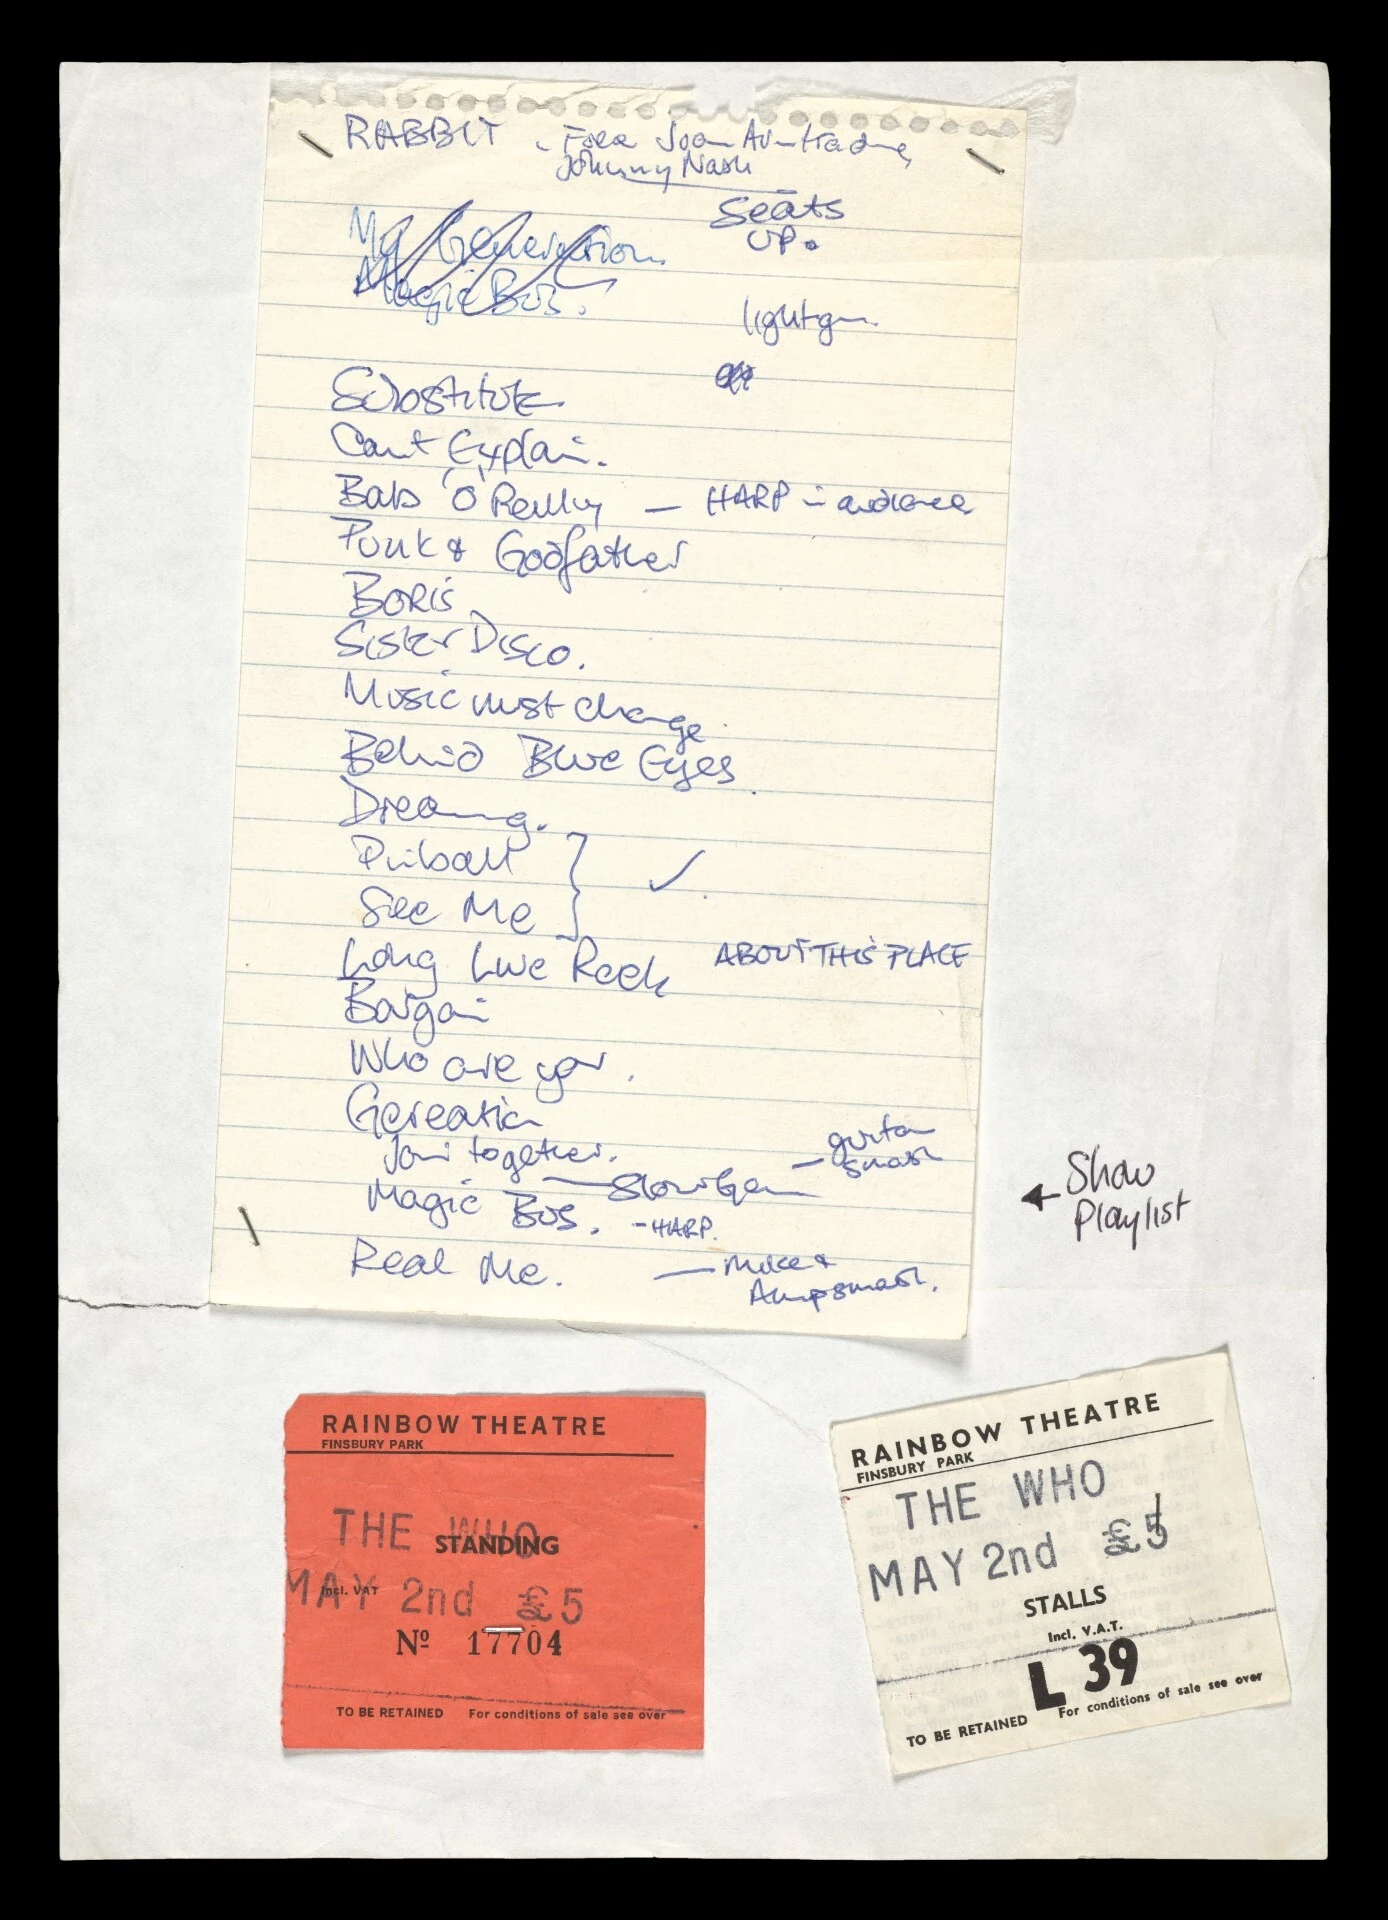 RABBIT - Free Joan Armatrading
Johnny Nash
Seats
UP.
My Generation.
Magic Bus.
Substitute
Cant Explain.
Baba 'O' Reilly — HARP in audience
Punk & Godfather
BORIS
Sister Disco.
Music must change.
Behind Blue Eyes.
Dreaming.
Pinball
See Me
Long Live Rock ABOUT THIS PLACE
Bargain
Who are you.
Generation
Join together. — guitar
smash
Magic Bus. - HARP.
Real Me. — Mike &
Ampsmash.
Show
Playlist
RAINBOW THEATRE
FINSBURY PARK
THE WHO
STANDING
Incl. VAT
MAY 2nd £5
Nº 17704
TO BE RETAINED For conditions of sale see over
RAINBOW THEATRE
FINSBURY PARK
THE WHO
MAY 2nd £5
STALLS
Incl. V.A.T.
L 39
TO BE RETAINED For conditions of sale see over